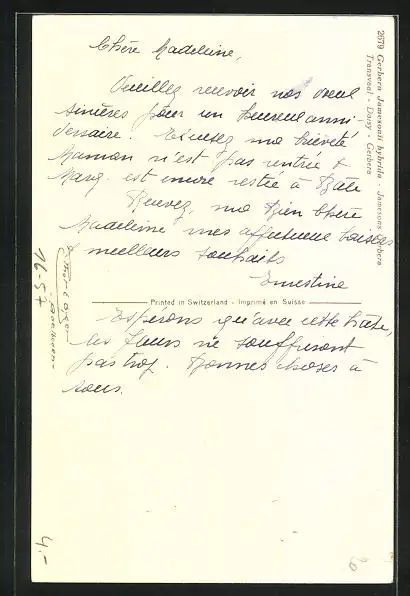 Chère Madeleine,
Veuillez recevoir nos vœux
sincères pour un heureux anni-
versaire. Excusez ma brièveté
Maman n'est pas rentrée &
Marg. est encore restée à Bâle
Recevez, ma bien chère
Madeleine mes affectueux baisers
& meilleurs souhaits
Ernestine
Printed in Switzerland - Imprimé en Suisse
Espérons qu'avec cette hâte,
les fleurs ne souffriront
pas trop. Bonnes choses à
tous.
2679 Gerbera Jamesonii hybrida - Jamesons Gerbera
Transvaal - Daisy - Gerbera
16-57
4.-